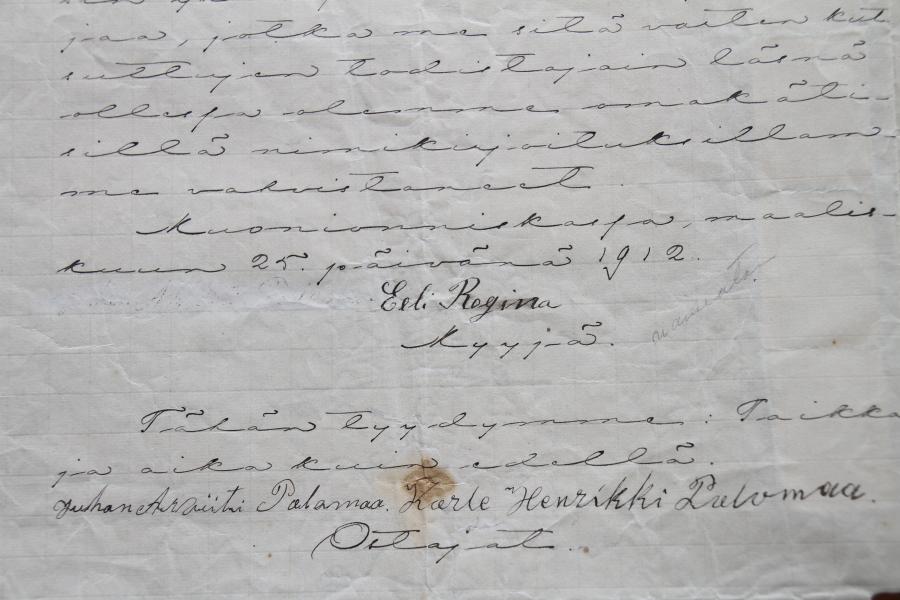 jaa, jotka me sitä varten kut-
suttujen todistajain läsnä
ollespa olemme omakäti-
sillä nimikirjoituksillam-
me vahvistaneet.
Muonionniskaspa, maalis-
kuun 25. päivänä 1912.
Eeli Regina
Myyjä.
Tähän tyydymme: Paikka
ja aika kuin edellä.
Palamaa. Karle Henrikki Palomaa.
Ostajat.